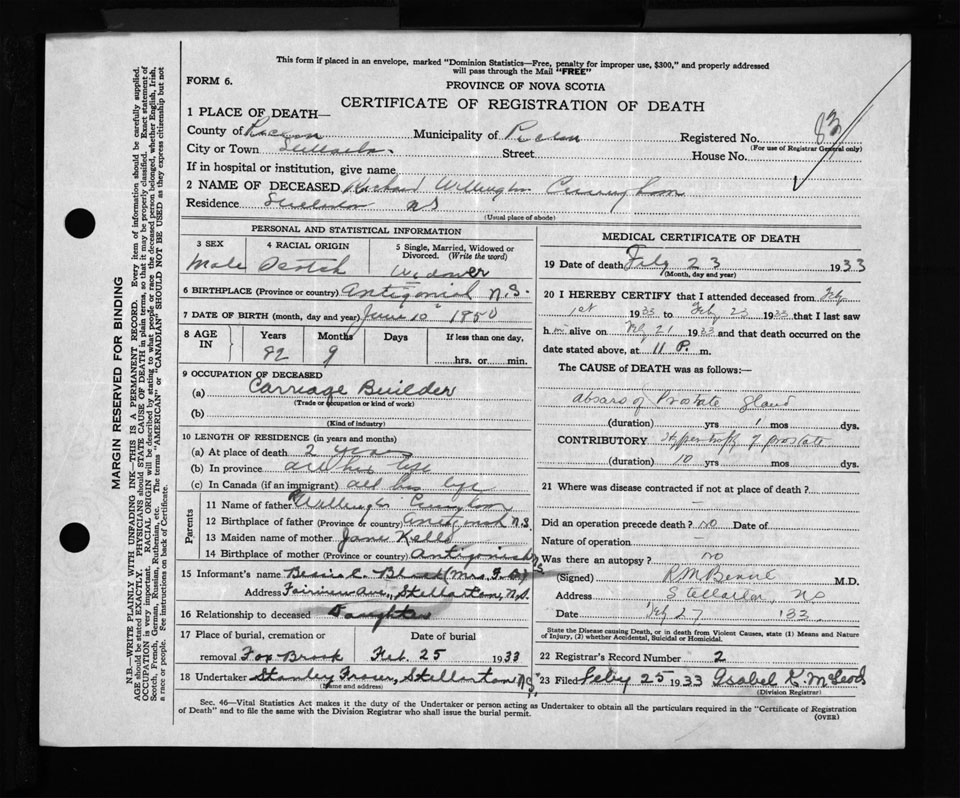 This form if placed in an envelope, marked "Dominion Statistics—Free, penalty for improper use, $300," and properly addressed
will pass through the Mail "FREE"
FORM 6.
PROVINCE OF NOVA SCOTIA
CERTIFICATE OF REGISTRATION OF DEATH
83
1 PLACE OF DEATH—
County of Pictou Municipality of Pictou Registered No.
(For use of Registrar General only)
City or Town Stellarton Street House No.
If in hospital or institution, give name
2 NAME OF DECEASED Richard Willoughby Cunningham
Residence Stellarton NS
(Usual place of abode)
PERSONAL AND STATISTICAL INFORMATION
3 SEX 4 RACIAL ORIGIN 5 Single, Married, Widowed or Divorced. (Write the word)
Male Scotch Widower
6 BIRTHPLACE (Province or country) Antigonish N.S.
7 DATE OF BIRTH (month, day and year) June 10 1850
8 AGE IN Years Months Days If less than one day,
82 9 hrs. or min.
9 OCCUPATION OF DECEASED
(a) Carriage Builder
(Trade or occupation or kind of work)
(b)
(Kind of industry)
10 LENGTH OF RESIDENCE (in years and months)
(a) At place of death 2 years
(b) In province all his life
(c) In Canada (if an immigrant) all his life
Parents
11 Name of father Cunningham
12 Birthplace of father (Province or country) Antigonish N.S.
13 Maiden name of mother Jane
14 Birthplace of mother (Province or country) Antigonish NS
15 Informant's name (Mrs. F. B.)
Address Fairview Ave., Stellarton, N.S.
16 Relationship to deceased Daughter
17 Place of burial, cremation or Date of burial
removal Fox Brook Feb. 25 1933
18 Undertaker Stanley Fraser, Stellarton N.S.
(Name and address)
MEDICAL CERTIFICATE OF DEATH
19 Date of death Feby 23 1933
(Month, day and year)
20 I HEREBY CERTIFY that I attended deceased from Feby
1st 1933 to Feby 23 1933 that I last saw
h im alive on Feby 21 1933 and that death occurred on
date stated above, at 11 P. m.
The CAUSE OF DEATH was as follows:—
Abscess of Prostate Gland
(duration) yrs 1 mos dys.
CONTRIBUTORY Hypertrophy of prostate
(duration) 10 yrs mos dys.
21 Where was disease contracted if not at place of death?
Did an operation precede death? no Date of
Nature of operation —
Was there an autopsy? no
(Signed) M.D.
Address Stellarton, NS
Date Feby 27 1933
State the Disease causing Death, or in death from Violent Causes, state (1) Means and Nature
of Injury, (2) whether Accidental, Suicidal or Homicidal.
22 Registrar's Record Number 2
23 Filed Feby 25 1933 Isabel K. McLeod
(Division Registrar)
Sec. 46—Vital Statistics Act makes it the duty of the Undertaker or person acting as Undertaker to obtain all the particulars required in the "Certificate of Registration
of Death" and to file the same with the Division Registrar who shall issue the burial permit.
(OVER)
MARGIN RESERVED FOR BINDING
N.B.—WRITE PLAINLY WITH UNFADING INK—THIS IS A PERMANENT RECORD. Every item of information should be carefully supplied.
AGE should be stated EXACTLY. PHYSICIANS should STATE CAUSE OF DEATH in plain terms, so that it may be properly classified. Exact statement of
OCCUPATION is very important. RACIAL ORIGIN will be described by stating to what people or race the deceased person belonged, whether English, Irish,
Scotch, French, German, Russian, Ruthenian, etc. The terms "AMERICAN" or "CANADIAN" SHOULD NOT BE USED as they express citizenship but not
a race or people. See instructions on back of Certificate.